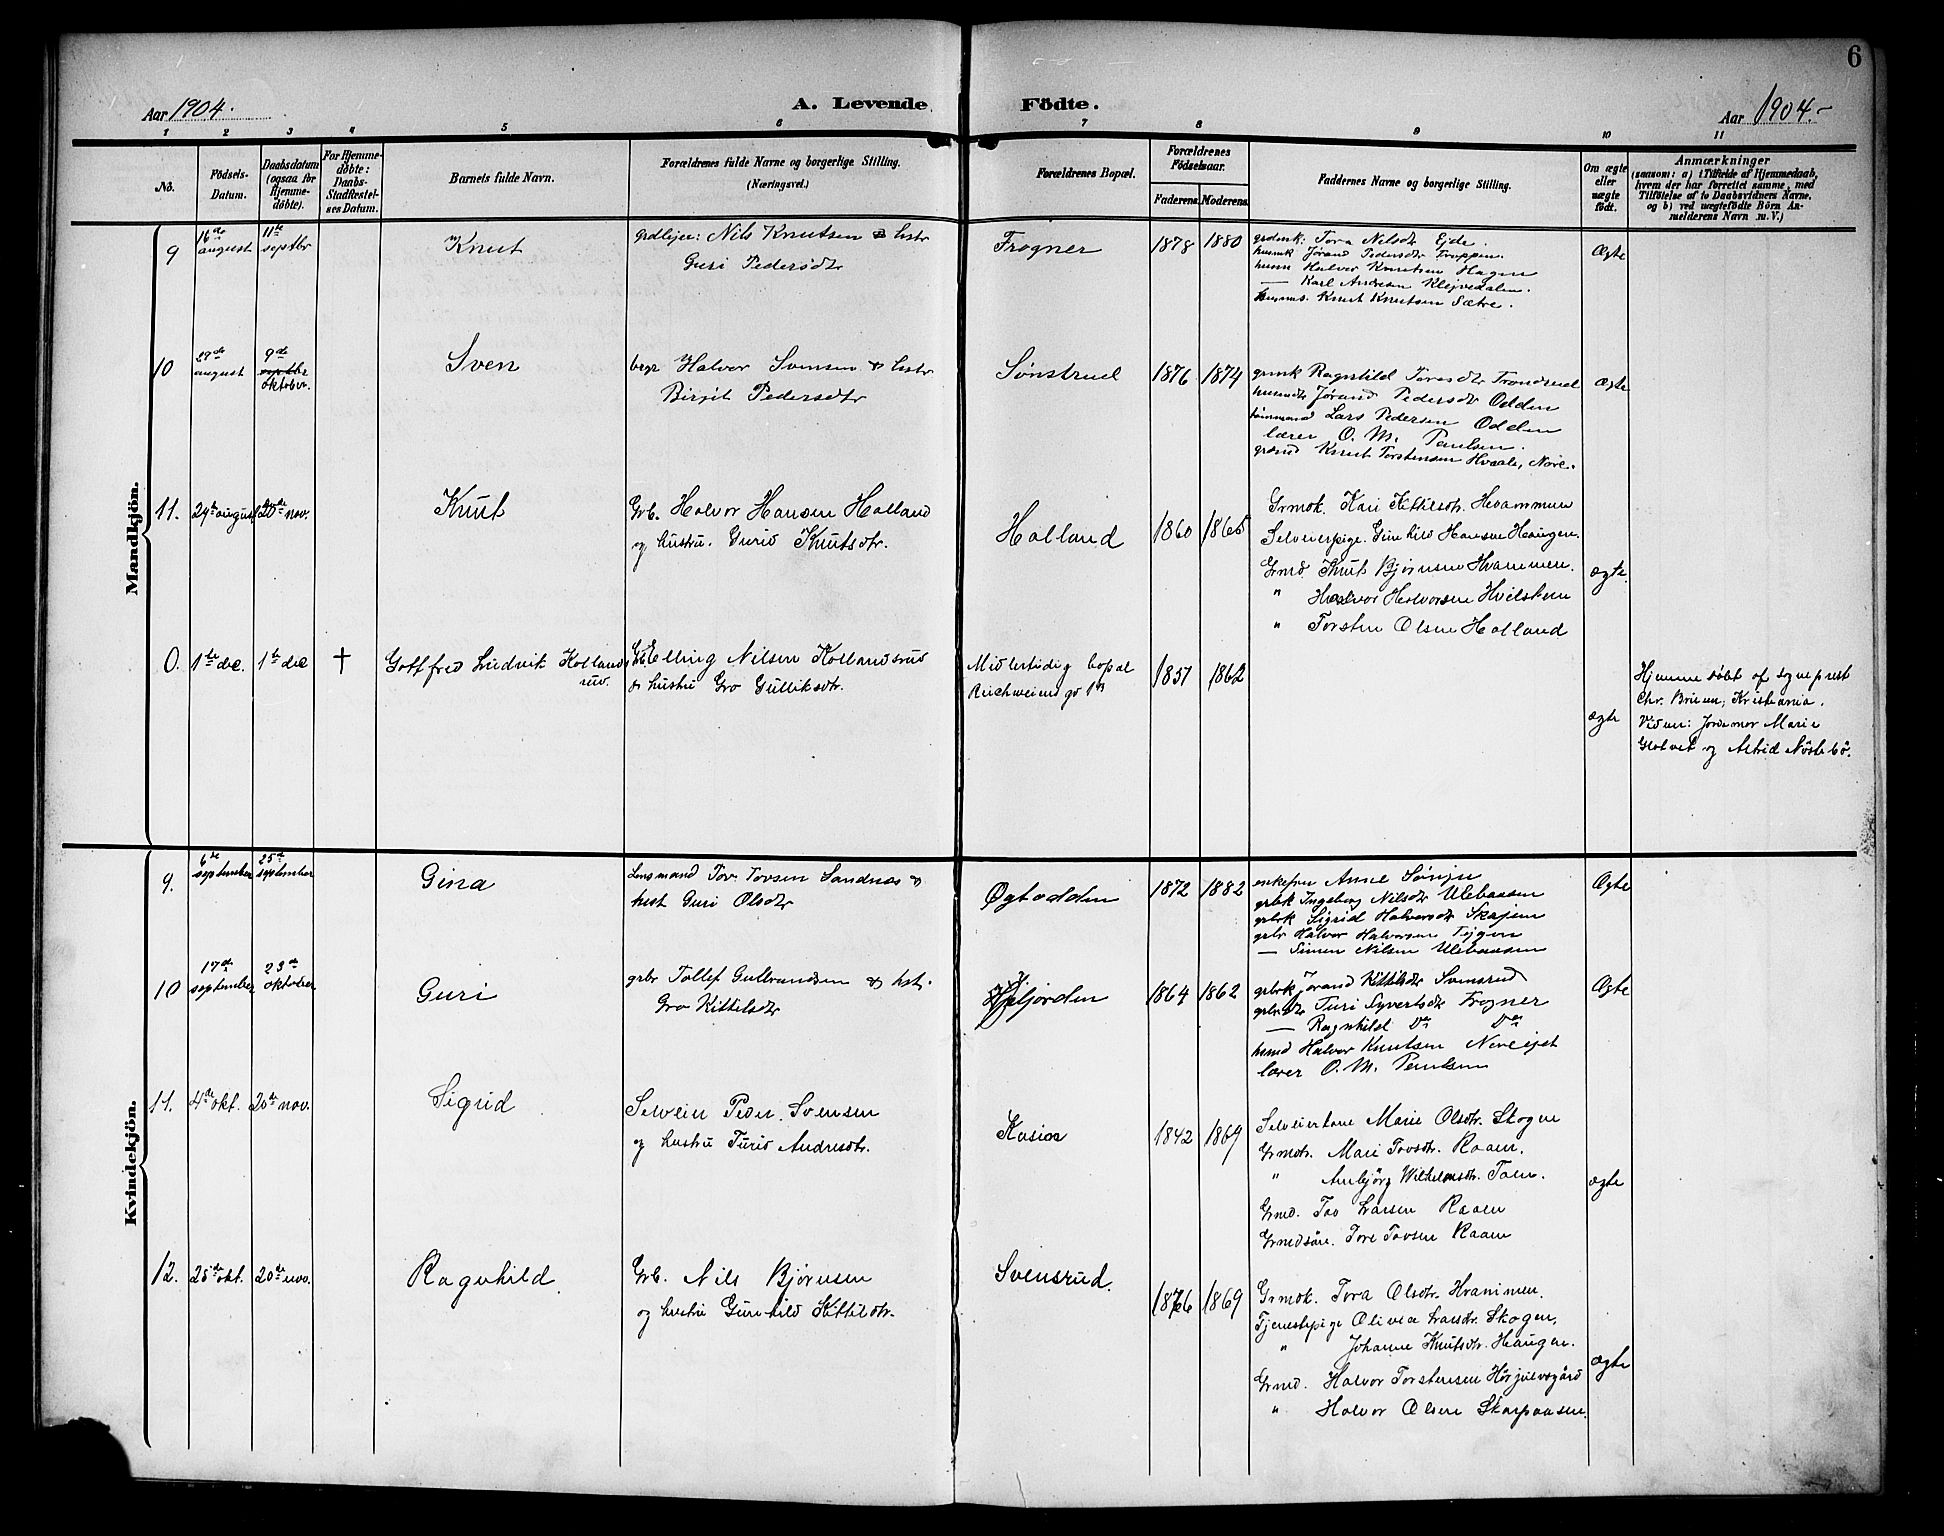 6
Aar 1904.
A. Levende Födte.
Aar 1904.-
1 2 3 4 5 6 7 8 9 10 11
No.
Fødsels-
Datum.
Daabsdatum
(ogsaa for
Hjemme-
døbte).
For Hjemme-
døbte:
Daabs-
Stadfæstel-
ses Datum.
Barnets fulde Navn.
Forældrenes fulde Navne og borgerlige Stilling.
(Næringsvei.)
Forældrenes Bopæl.
Forældrenes
Fødselsaar.
Faderens. Moderens.
Faddernes Navne og borgerlige Stilling.
Om ægte
eller
uægte
født.
Anmærkninger
(saasom: a) i Tilfælde af Hjemmedaab,
hvem der har forrettet samme, med
Tilføielse af to Daabsvidners Navne,
og b) ved uægtefødte Börn An-
melderens Navn m. V.)
Mandkjön.
9
16de
august
11te
septbr
Knut
Nils Knutsen & hstr
Guri Pedersdtr
Frogner
1878 1880
Tora Nilsdtr Ejde.
Jørand Pedersdtr Troppen.
Halvor Knutsen Hagen
— Karl Andresen Klejvedalen.
Knut Knutsen Sætre.
Ægte
10
29de
august
9de
septbr
oktober.
Sven
Halvor Svensen & hstr
Birgit Pedersdtr
Sønstrud
1876 1874
Ragnhild Toresdtr Trondrud
Jørand Pedersdtr Odden
Lars Pedersen Odden
lærer O. M. Paulsen.
Knut Torstensen Hvaale, Nore.
Ægte
11.
29de august
20de nov.
Knut
Grb. Halvor Hansen Holland
og hustru. Gurid Knutsdtr.
Holland
1860 1865
Grmok. Kari Kittilsdtr. Hvammen
Selveierpige. Gunhild Hansen Haugen.
Grmd. Knut Bjørnsen Hvammen.
" Halvor Halvorsen
" Torsten Olsen Holland
ægte.
0.
1ste dec.
1ste dec
†
Gottfred Ludvik Kolland
rud.
Elling Nilsen Kollandsrud
& hustru Gro Gulliksdtr.
Midlertidig bopæl
1857 1862
ægte
Hjemmedøbt af
Chr. Bruun, Kristiania.
Vidner: Jordmor Marie
og Astrid Nöstebö.
Kvindekjön.
9.
6te
september
25de
september
Gina
Lensmand Tov Tovsen Sandnes &
hust Guri Olsdtr
Øgtodden
1872 1882
enkefru Anne
Ingeborg Nilsdtr Ulebaasen
Sigrid Halvorsdtr Skajem
Halvor Halvorsen
— Simen Nilsen Ulebaasen
Ægte
10
17de
september
23de
oktober
Guri
grbr Tollef Gulbrandsen & hst.
Gro Kittilsdtr
1864 1862
Jørand Kittilsdtr Svensrud
Turi Syvertsdtr Frogner
— Ragnhild Do Do
Halvor Knutsen
lærer O. M. Paulsen
Ægte
11.
4de okt.
20de nov.
Sigrid
Selveier Peder Svensen
og hustru Turid Andresdtr.
Kasin
1842 1869
Selveierkone Marie Olsdtr. Skogen
Grmdtr. Mari Tovsdtr. Raaen.
" Anbjörg Wilhelmsdtr.
Grmd. Tov Larsen Raaen
Grmdsön. Tore Tovsen Raaen
ægte
12.
25de okt.
20de nov.
Ragnhild
Grb. Nils Bjørnsen
og hustru Gunhild Kittilsdtr.
Svensrud
1866 1869
Grmok. Tora Olsdtr. Hvammen.
Tjenestepige Olivia Larsdtr. Skogen.
" Johanne Knutsdtr. Haugen.
Grmd. Halvor Torstensen Hörjulvsgård
" Halvor Olsen Skarpaasen.
ægte